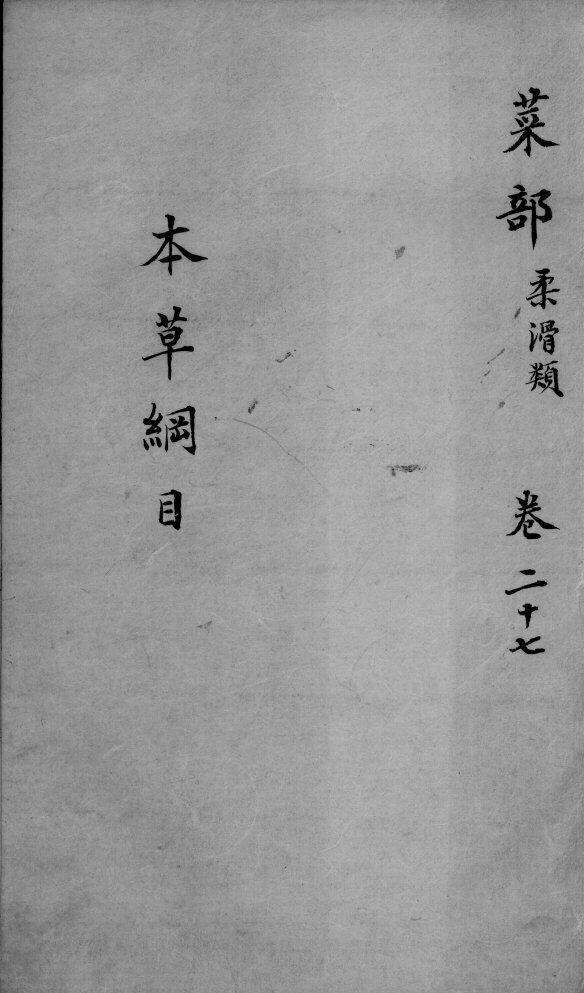 菜部 柔滑類 卷二十七
本草綱目